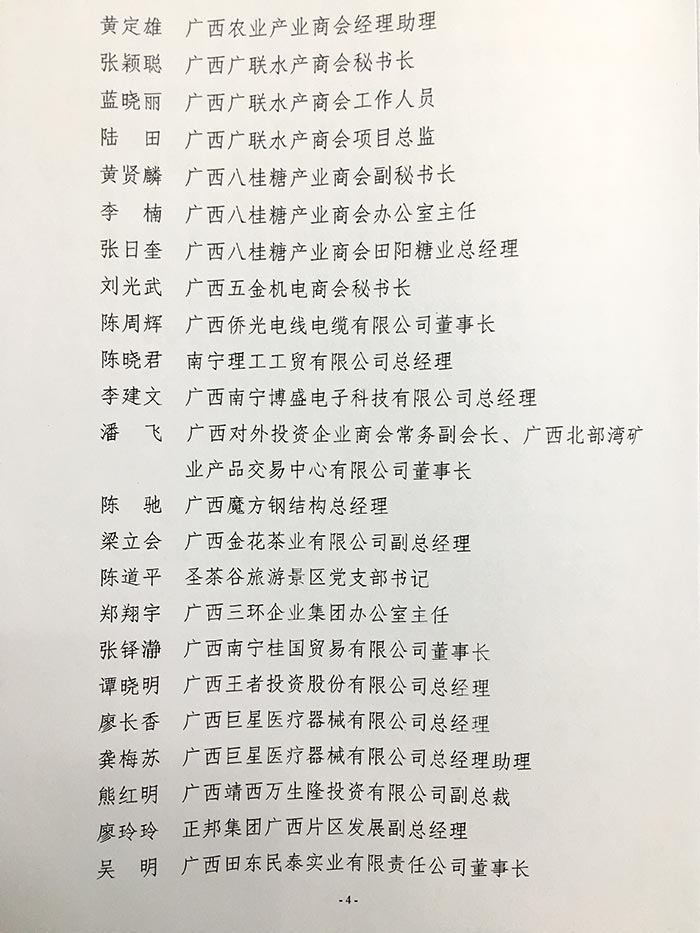 黄定雄 广西农业产业商会经理助理
张颖聪 广西广联水产商会秘书长
蓝晓丽 广西广联水产商会工作人员
陆 田 广西广联水产商会项目总监
黄贤麟 广西八桂糖产业商会副秘书长
李 楠 广西八桂糖产业商会办公室主任
张日奎 广西八桂糖产业商会田阳糖业总经理
刘光武 广西五金机电商会秘书长
陈周辉 广西侨光电线电缆有限公司董事长
陈晓君 南宁理工工贸有限公司总经理
李建文 广西南宁博盛电子科技有限公司总经理
潘 飞 广西对外投资企业商会常务副会长、广西北部湾矿
业产品交易中心有限公司董事长
陈 驰 广西魔方钢结构总经理
梁立会 广西金花茶业有限公司副总经理
陈道平 圣茶谷旅游景区党支部书记
郑翔宇 广西三环企业集团办公室主任
张铎瀞 广西南宁桂国贸易有限公司董事长
谭晓明 广西王者投资股份有限公司总经理
廖长香 广西巨星医疗器械有限公司总经理
龚梅苏 广西巨星医疗器械有限公司总经理助理
熊红明 广西靖西万生隆投资有限公司副总裁
廖玲玲 正邦集团广西片区发展副总经理
吴 明 广西田东民泰实业有限责任公司董事长
-4-